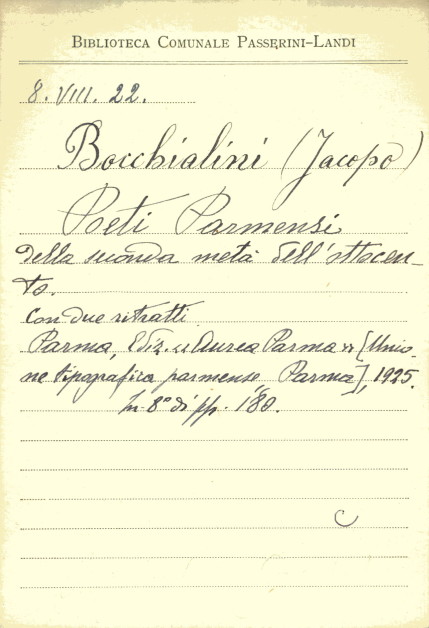 BIBLIOTECA COMUNALE PASSERINI-LANDI
8. VIII. 22.
Bocchialini (Jacopo)
Poeti Parmensi
della seconda metà dell'ottocen-
to.
Con due ritratti
Parma, Ediz. « Aurea Parma » [Unio-
ne tipografica parmense, Parma], 1925.
In-8° di pp. 180.
C